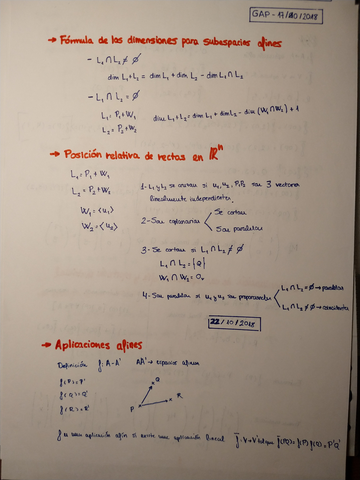 GAP - 17/10/2018
→ Fórmula de las dimensiones para subespacios afines
- L₁ ∩ L₂ ≠ ∅
dim L₁+L₂ = dim L₁ + dim L₂ - dim L₁∩L₂
- L₁ ∩ L₂ = ∅
L₁ = P₁+W₁
L₂ = P₂+W₂
dim L₁+L₂ = dim L₁ + dim L₂ - dim (W₁∩W₂) + 1
→ Posición relativa de rectas en ℝⁿ
L₁ = P₁ + W₁
L₂ = P₂ + W₂
W₁ = <u₁>
W₂ = <u₂>
1- L₁ y L₂ se cruzan si u₁, u₂, P₁P₂ son 3 vectores
linealmente independientes.
2- Son coplanarias
Se cortan
Son paralelas
3- Se cortan si L₁ ∩ L₂ ≠ ∅
L₁ ∩ L₂ = {Q}
W₁ ∩ W₂ = 0
4- Son paralelas si u₁ y u₂ son proporcionales
L₁ ∩ L₂ = ∅ → paralelas
L₁ ∩ L₂ ≠ ∅ → coincidentes
22/10/2018
→ Aplicaciones afines
Definición f: A → A' A,A' → espacios afines
f(P) = P'
f(Q) = Q'
f(R) = R'
Q
P
R
f es una aplicación afín si existe una aplicación lineal f: V → V' tal que f(PQ) = f(P) f(Q) = P'Q'